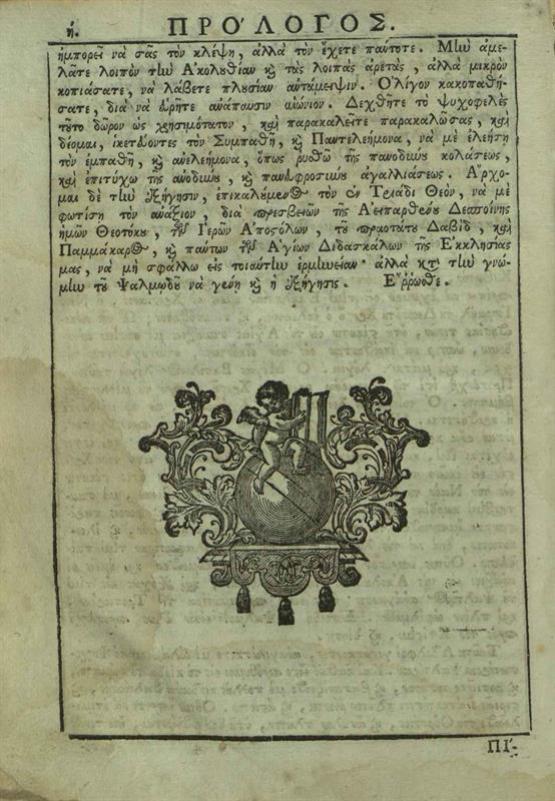 ή. ΠΡΟ΄ΛΟΓΟΣ.
ἠμπορεῖ νὰ σᾶς τὸν κλέψῃ, ἀλλὰ τὸν ἔχετε παύτοτε. Μὴν ἀμε-
λᾶτε λοιπὸν τὴν Ἀκολουθίαν ϗ τὰς λοιπὰς ἀρετὰς, ἀλλὰ μικρὸν
κοπιάσατε, νὰ λάβετε πλουσίαν αὐτάμειψιν. Ὀλίγον κακοπαθή-
σατε, διὰ νὰ εὕρητε ἀνάπαυσιν αἰώνιον. Δεχθῆτε τὸ ψυχοφελὲς
τοῦτο δῶρον ὡς χρησιμότατον, καὶ παρακαλεῖτε παρακαλῶσας, καὶ
δέομαι, ἱκετεύοντες τὸν Συμπαθῆ, ϗ Παντελεήμονα, νὰ μὲ ἐλεήσῃ
τὸν ἐμπαθῆ, ϗ ἀνελεήμονα, ὅπως ῥυσθῶ τῆς πανοδύνου κολάσεως,
καὶ ἐπιτύχω τῆς ἀνοδύνου, ϗ πανευφροσύνου ἀγαλλιάσεως. Ἄρχο-
μαι δὲ τὴν ἐξήγησιν, ἐπικαλούμενος τὸν ἐν Τριάδι Θεὸν, νὰ μὲ
φωτίσῃ τὸν ἀνάξιον, διὰ πρεσβειῶν τῆς Ἀειπαρθένου Δεσποίνης
ἡμῶν Θεοτόκου, τῶν Ἱερῶν Ἀποστόλων, τοῦ πραοτάτου Δαβὶδ, καὶ
Παμμάκαρος, ϗ πάντων τῶν Ἁγίων Διδασκάλων τῆς Ἐκκλησίας
μας, νὰ μὴ σφάλλω εἰς τοιαύτην ἑρμηνείαν· ἀλλὰ κατὰ τὴν γνώ-
μην τοῦ Ψαλμῳδοῦ νὰ γένῃ ϗ ἡ ἐξήγησις. Ἔῤῥωσθε.
ΠΙ΄-